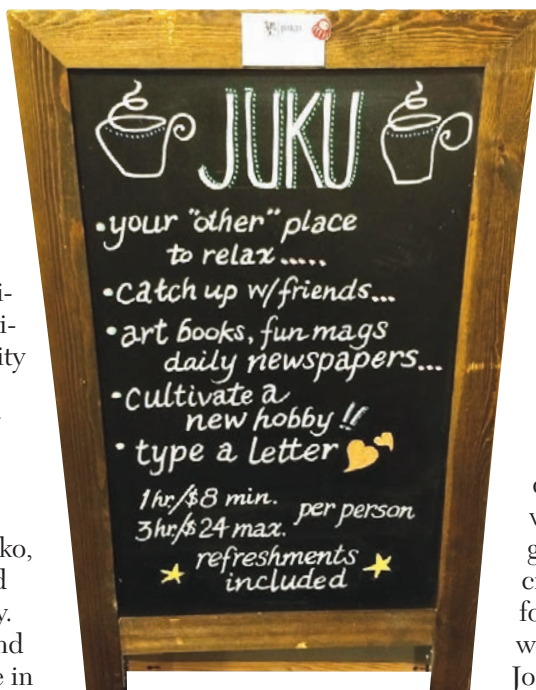 JUKU
•your "other" place
to relax.....
•catch up w/friends...
•art books, fun mags
daily newspapers...
•cultivate a
new hobby!!
•type a letter
1hr/$8 min.
3hr/$24 max.
per person
refreshments
included
i-
i-
ity
ko,
d
y.
nd
e in
v
g
fo
w
Jo